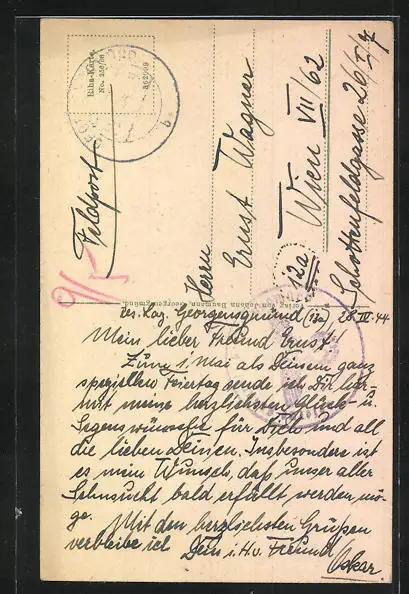 Riba-Karte
No. 256/06
362009
Feldpost
Herrn
Ernst Wagner
(12a) Wien VII/62
Schottenfeldgasse 26/I/7
Verlag von Johann Baumann, Georgensgmünd.
Res. Laz. Georgensgmünd (13a) 28.IV.44
Mein lieber Freund Ernst!
Zum 1. Mai als Deinem ganz
speziellen Feiertag sende ich Dir hier-
mit meine herzlichsten Glück- u.
Segenswünsche für Dich und all
die lieben Deinen. Insbesondere ist
es mein Wunsch, daß unser aller
Sehnsucht bald erfüllt werden mö-
ge.
Mit den herzlichsten Grüßen
verbleibe ich Dein i. Hv. Freund
Oskar.